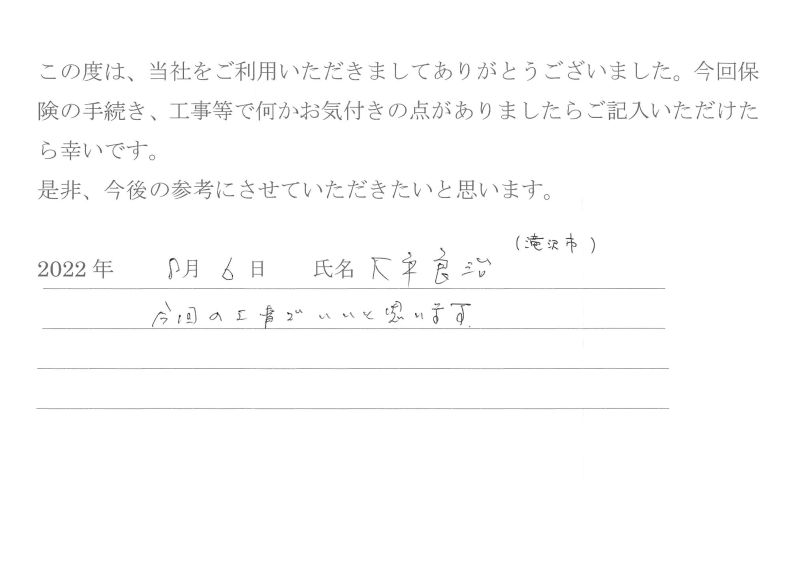 この度は、当社をご利用いただきましてありがとうございました。今回保
険の手続き、工事等で何かお気付きの点がありましたらご記入いただけた
ら幸いです。
是非、今後の参考にさせていただきたいと思います。
(滝沢市)
2022年 8月 6日 氏名 良治
今回の工事でいいと思います